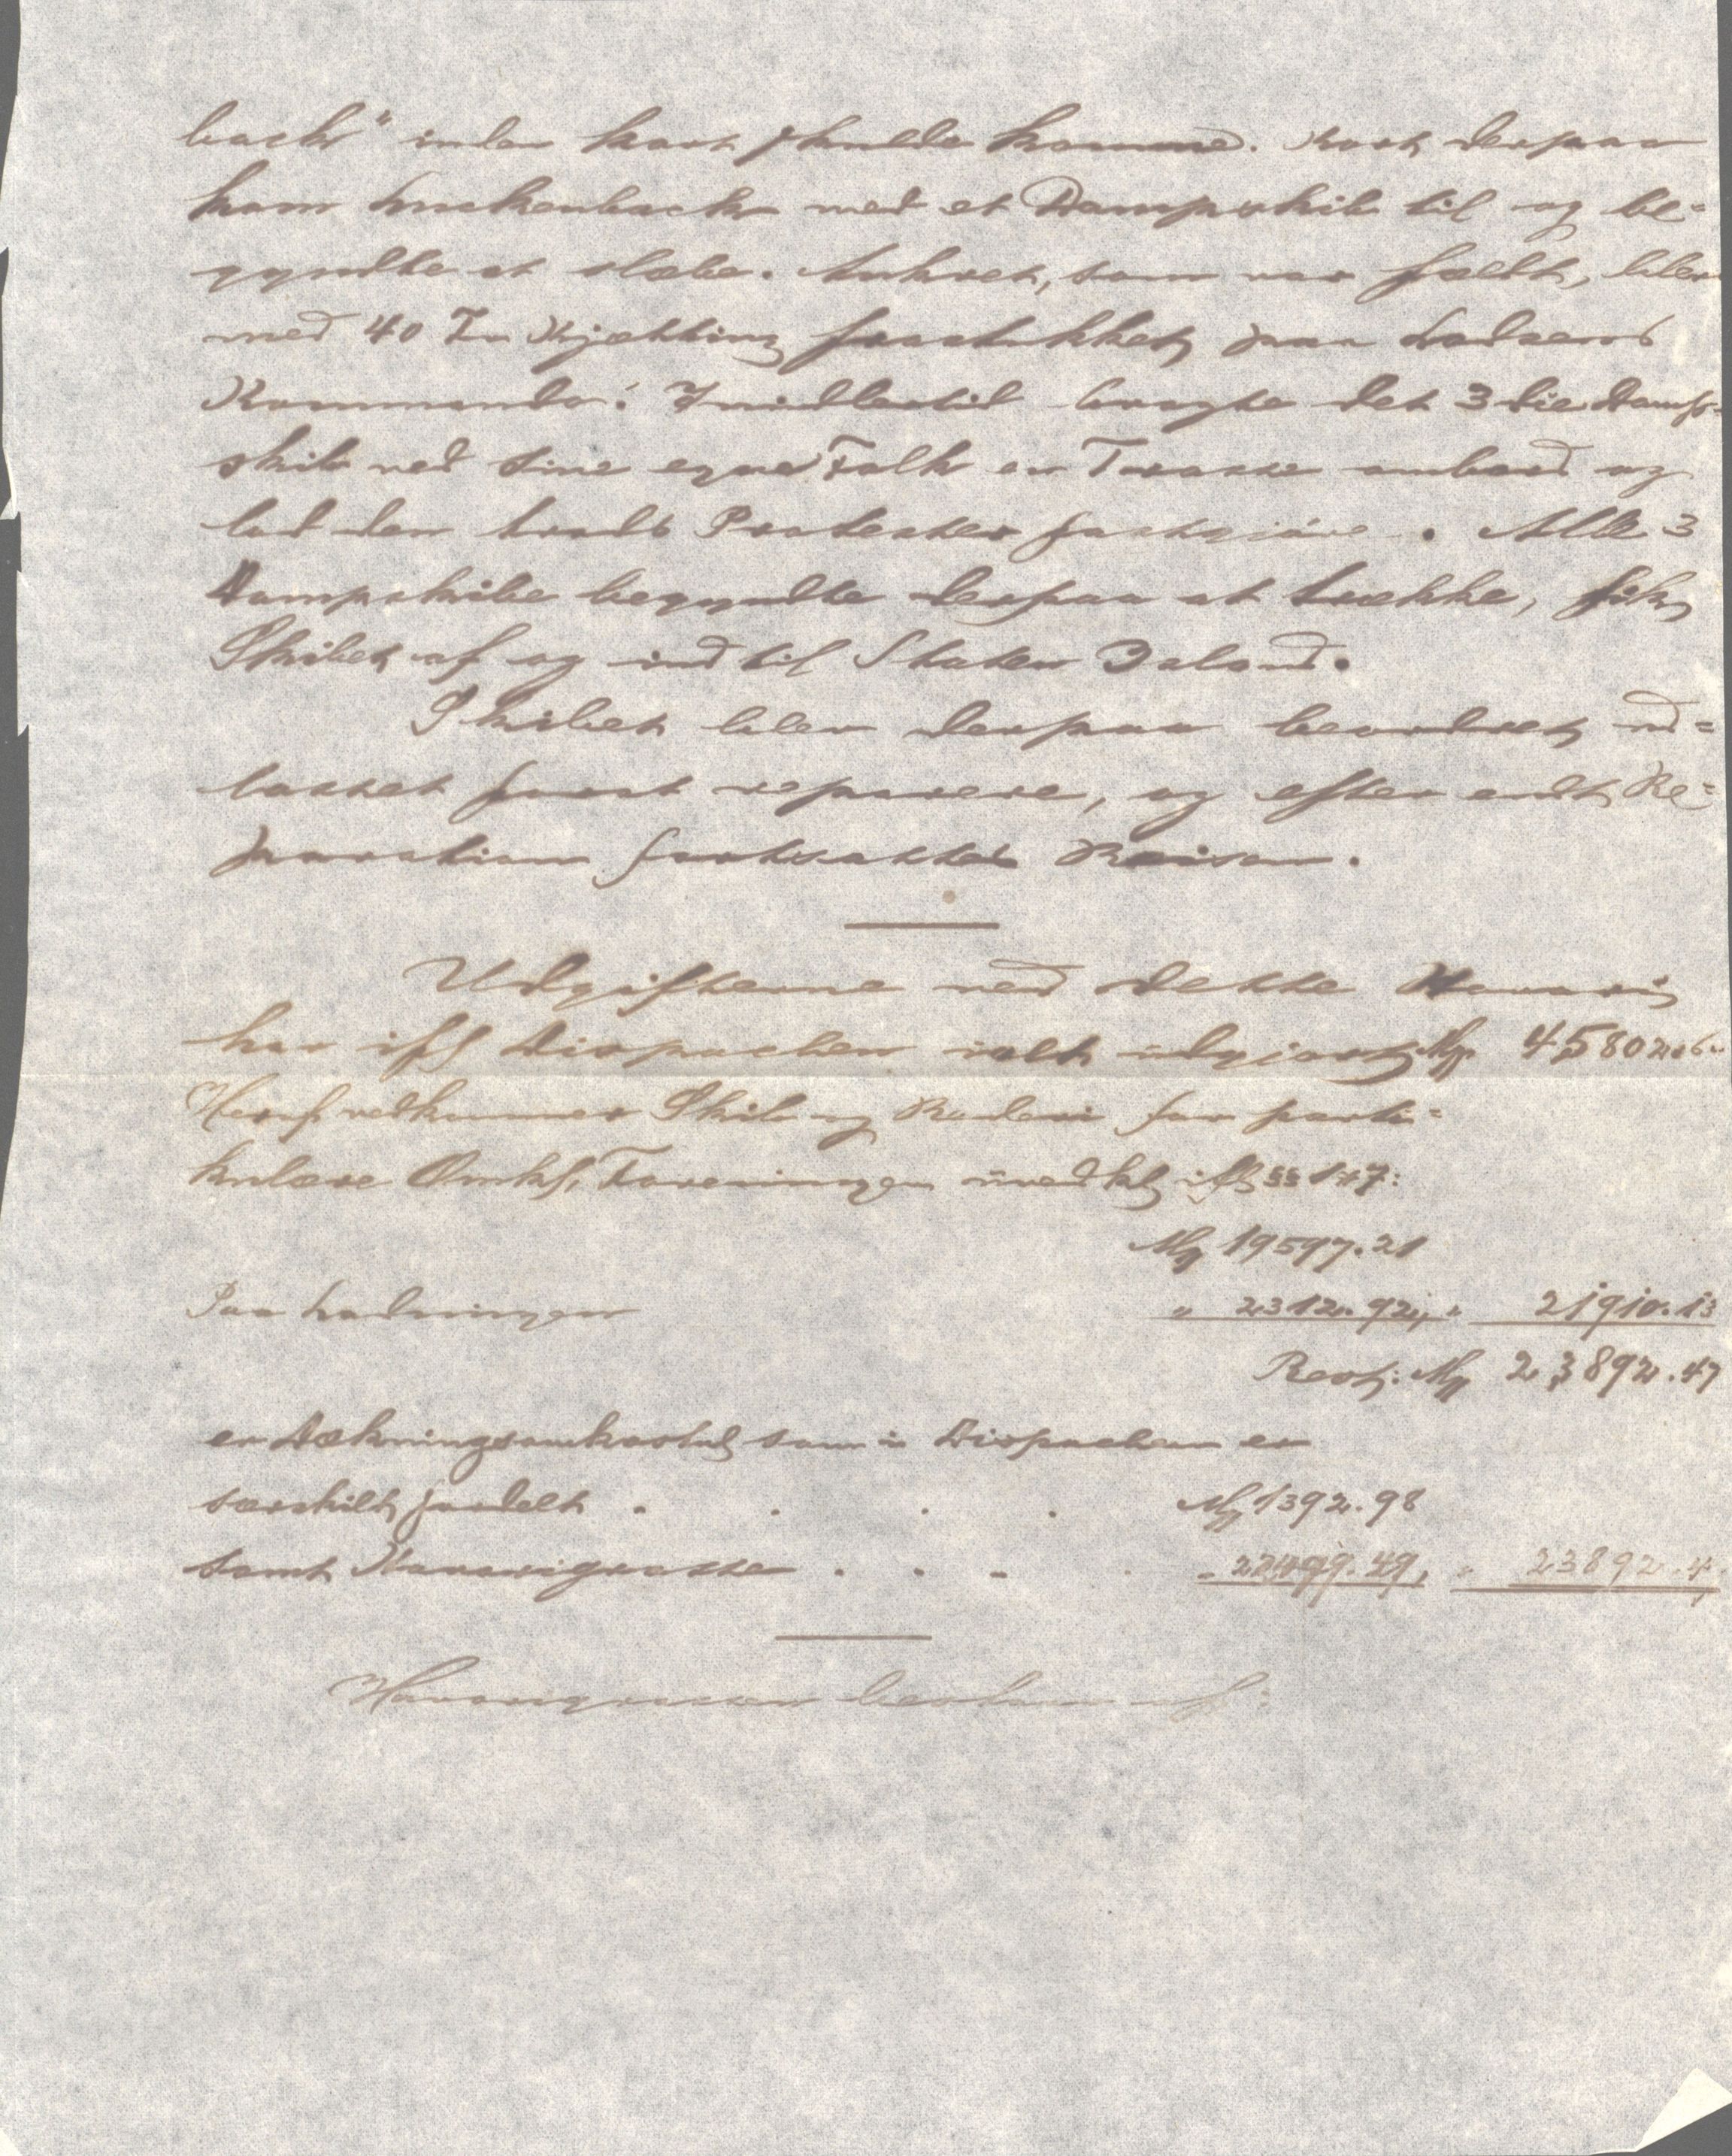 bach" inden kort skulde komme. Kort derpaa
kom Luckenbach med et Dampskib til og be=
gyndte at slæbe. Ankret, som var fældt, blev
med 40 Fv Kjætting forstukket paa Lodsens
Kommando. Imidlertid bragte det 3die Damp=
skib ved sine egne Folk en Trosse ombord og
lod den trods Protester fastgjøre. Alle 3
Dampskibe begyndte derpaa at trække, fik
Skibet af og ind til Staten Island.
Skibet blev derpaa beordret ud=
losset forat reparere, og efter endt Re=
paration fortsattes Reisen.
Udgifterne ved dette Havari
har ifl Dispachen ialt udgjort Mk 45802.60
Heraf vedkommer Skib og Rederi for parti=
kulære Omk, Foreningen uvedk ifl §§ 1 & 7:
Mk 19597.21
Paa Ladningen " 2312.92, " 21910.13
Rest: Mk 23892.47
er Dækningsomkostn som i Dispachen er
særskilt fordelt . . . . Mk 1392.98
samt Havarigrosse . . . . " 22499.49, " 23892.4
Havarigrossen bestaar af: